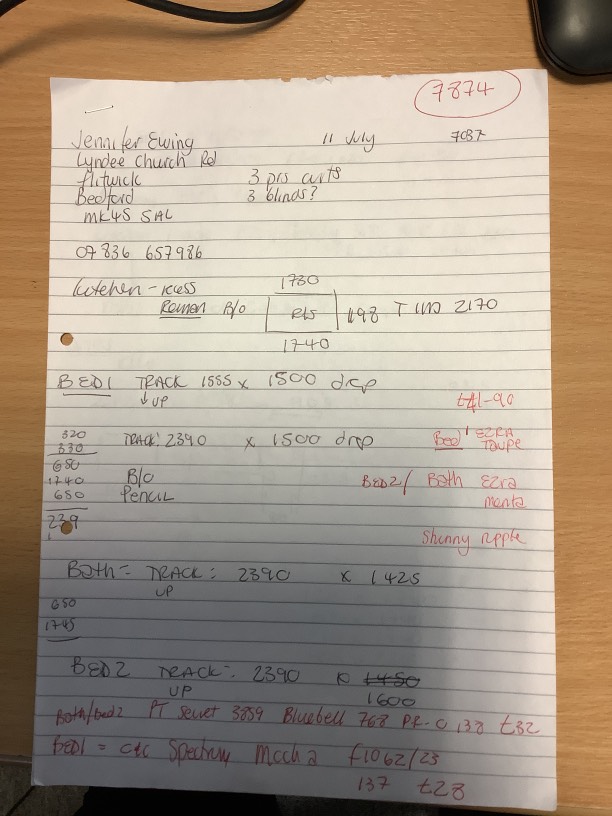 7874
Jennifer Ewing 11 July 7087
Lyndee Church Rd
Flitwick 3 prs curts
Bedford 3 blinds?
MK45 5AL
07836 657986
Kitchen - recess 1730
Roman B/o 1198 T 2170
1740
BED1 TRACK 1555 x 1500 drop
↓ UP
320 TRACK: 2390 x 1500 drop Bed1 EZRA
330 Taupe
650
1740 B/o BED2/ Bath Ezra
650 Pencil
239
BATH = TRACK: 2390 x 1425
UP
650
1745
BED2 TRACK: 2390 1450
UP 1600
Bath/bed2 PT Secret 3859 Bluebell 768 PR-0 138 £32
BED1 = Spectrum Mocha £1062/23
137 £28